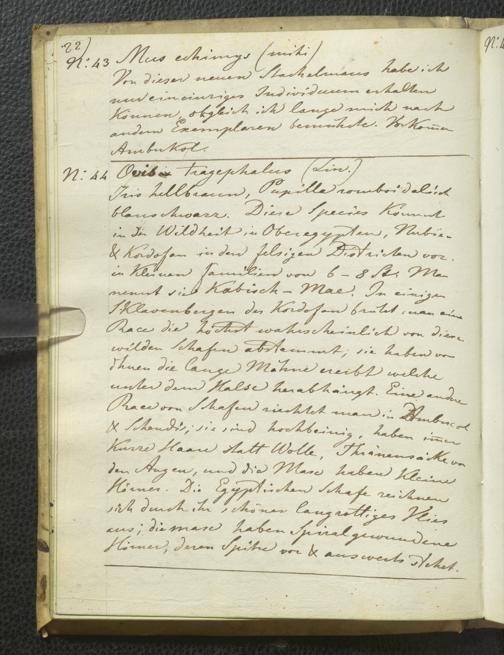 22)
N: 43 Mus echimys (mihi)
Von dieser neuen Stachelmaus habe ich
nur ein einziges Individuum erhalten
können, obgleich ich lange mich nach
andern Exemplaren bemühte. Vorkomēn
Ambukol.
N: 44 Ovis tragephalus (Lin.)
Iris hellbraun, Pupille romboidalisch
blauschwarz. Diese Species kommt
in der Wildheit in Oberegypten, Nubien
& Kordofan in den felsigen Districten vor.
in kleinen Familien von 6 – 8 St. Man
nennt sie Kabisch – Mae. In einigen
Sklavenbergen des Kordofan man eine
Race die höchst wahrscheinlich von diesen
wilden Schafen abstammt; sie haben von
ihnen die lange Mähne welche
unter dem Halse herabhängt. Eine andre
Race von Schafen man in Ambucol
& Schendi; sie sind hochbeinig, haben
kurze Haare statt Wolle, Thränensäcke vor
den Augen, und die Mase haben kleine
Hörner. Die Egyptischen Schafe zeichnen
sich durch ihr schönes Vlies
aus; die mase haben Spiral gewundene
Hörner, deren Spitze vor & auswerts stehet.
N: 4